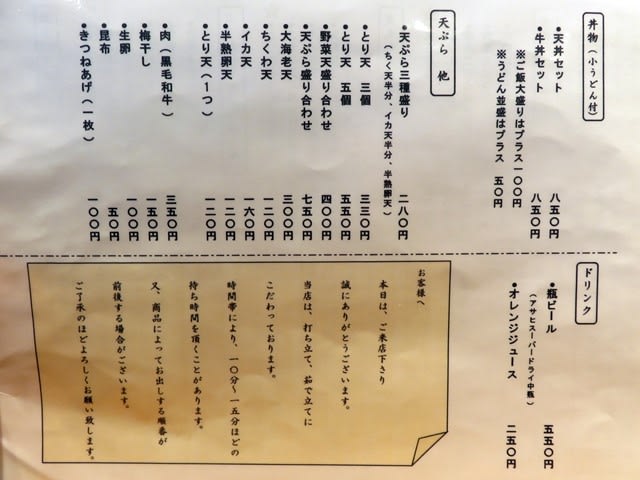 丼物(小うどん付)
・天丼セット 八五〇円
・牛丼セット 八五〇円
※ご飯大盛りはプラス一〇〇円
※うどん並盛はプラス 五〇円
天ぷら 他
・天ぷら三種盛り 二八〇円
(ちく天半分、イカ天半分、半熟卵天)
・とり天 三個 三三〇円
・とり天 五個 五五〇円
・野菜天盛り合わせ 四〇〇円
・天ぷら盛り合わせ 七五〇円
・大海老天 三〇〇円
・ちくわ天 一二〇円
・イカ天 一六〇円
・半熟卵天 一二〇円
・とり天(1つ) 一二〇円
・肉(黒毛和牛) 三五〇円
・梅干し 一五〇円
・生卵 一〇〇円
・昆布 五〇円
・きつねあげ(一枚) 一〇〇円
ドリンク
・瓶ビール 五五〇円
(アサヒスーパードライ中瓶)
・オレンジジュース 二五〇円
お客様へ
本日は、ご来店下さり
誠にありがとうございます。
当店は、打ち立て、茹で立てに
こだわっております。
時間帯により、一〇分〜一五分ほどの
待ち時間を頂くことがあります。
又、商品によってお出しする順番が
前後する場合がございます。
ご了承のほどよろしくお願い致します。